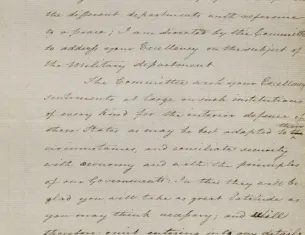 the different departments with reference
to a peace; I am directed by the Committee
to address your Excellency on the subject of
the Military department
The Committee wish your Excellency's
sentiments at large on such institutions
of every kind for the interior defence of
these States as may be best adapted to their
circumstances, and conciliate security
with economy and with the principles
of our Governments. In this they will be
glad you will take as great latitude as
you may think necessary; and will
therefore omit entering into any details